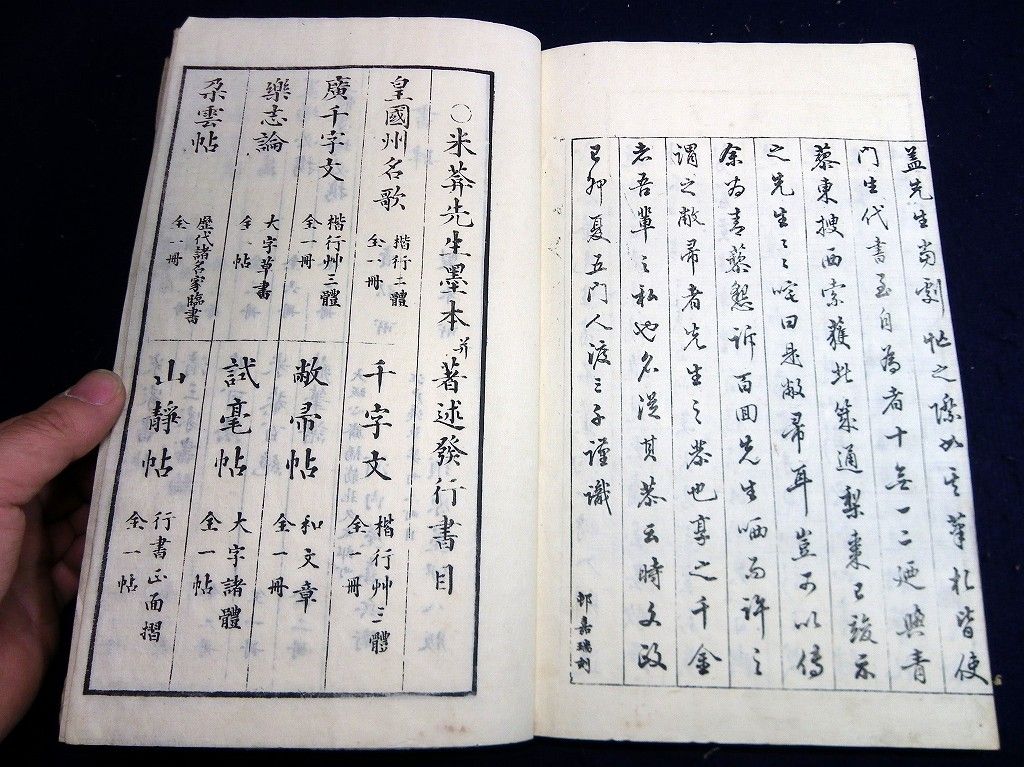 蓋先生當劇忙之際如其筆札皆使
門生代書至自為者十無一二廼與青
藜東搜西索獲此築通梨棗已竣示
之先生〻咤曰是敝帚耳豈可以傳
余為青藜懇訴百回先生哂而許之
謂之敝帚者先生之恭也享之千金
者吾輩之私也名從其恭云時文政
己卯夏五門人渡三子謹識
郭嘉瑞刻
〇米葊先生墨本并著述發行書目
皇國州名歌 楷行二體 全一冊
千字文 楷行艸三體 全一冊
廣千字文 楷行艸三體 全一冊
敝帚帖 和文章 全一冊
樂志論 大字草書 全一帖
試毫帖 大字諸體 全一帖
朶雲帖 歷代諸名家臨書 全一冊
山靜帖 行書正面摺 全一帖